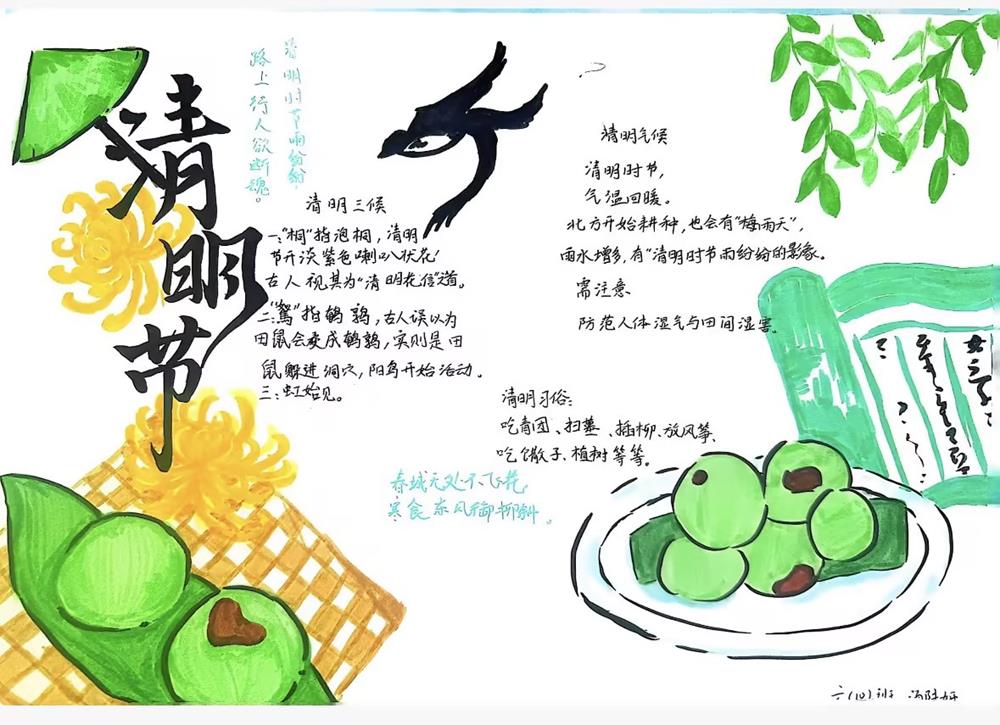 清明节
清明时节雨纷纷，
路上行人欲断魂。
清明三候
一:"桐"指泡桐，清明
节开淡紫色喇叭状花
古人视其为"清明花信"道。
二:"鴽"指鹌鹑，古人误以为
田鼠会变成鹌鹑，实则是田
鼠躲进洞穴，阳鸟开始活动。
三:虹始见。
清明气候
清明时节，
气温回暖。
北方开始耕种，也会有"梅雨天"，
雨水增多，有"清明时节雨纷纷的影象。
需注意
防范人体湿气与田间湿害。
清明习俗:
吃青团、扫墓、插柳、放风筝、
吃馓子、植树等等。
春城无处不飞花
寒食东风御柳斜。
六(10)班